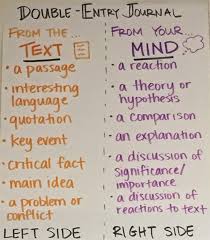 DOUBLE-ENTRY JOURNAL
FROM THE...
TEXT
• a passage
• interesting
language
• quotation
• key event
• critical fact
• main idea
• a problem or
conflict
LEFT SIDE
FROM YOUR
MIND
• a reaction
• a theory or
hypothesis
• a comparison
• an explanation
• a discussion of
significance/
importance
• a discussion of
reactions to text
RIGHT SIDE